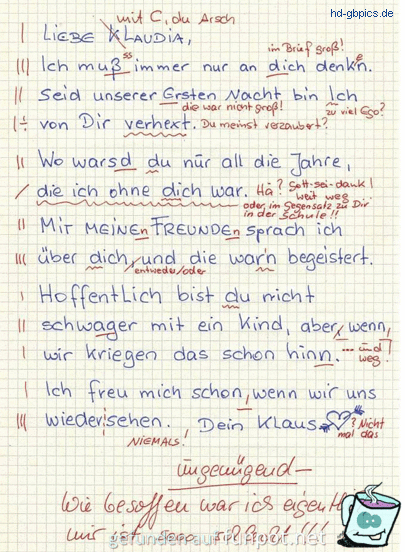 mit C, du Arsch
hd-gbpics.de
| LIEBE KLAUDIA,
im Brief groß!
||| Ich muß ss immer nur an dich denk'n. e
|| Seid unserer Ersten Nacht bin Ich
die war nicht groß! zu viel Ego?
|÷ von Dir verhext. Du meinst verzaubert?
|| Wo warsd du nur all die Jahre,
/ die ich ohne dich war. Hä? Gott-sei-dank!
weit weg
oder, im Gegensatz zu Dir
in der Schule!!
|| Mit MEINEn FREUNDEn sprach ich
||| über dich, und die war'n begeistert.
entweder/oder
| Hoffentlich bist du nicht
|| schwager mit ein Kind, aber, wenn,
| wir kriegen das schon hinn. ... und weg!
| Ich freu mich schon, wenn wir uns
||| wiedersehen. Dein Klaus ? Nicht
NIEMALS! mal das
ungenügend—
Wie besoffen war ich
mir ist
gefunden auf funpot.net